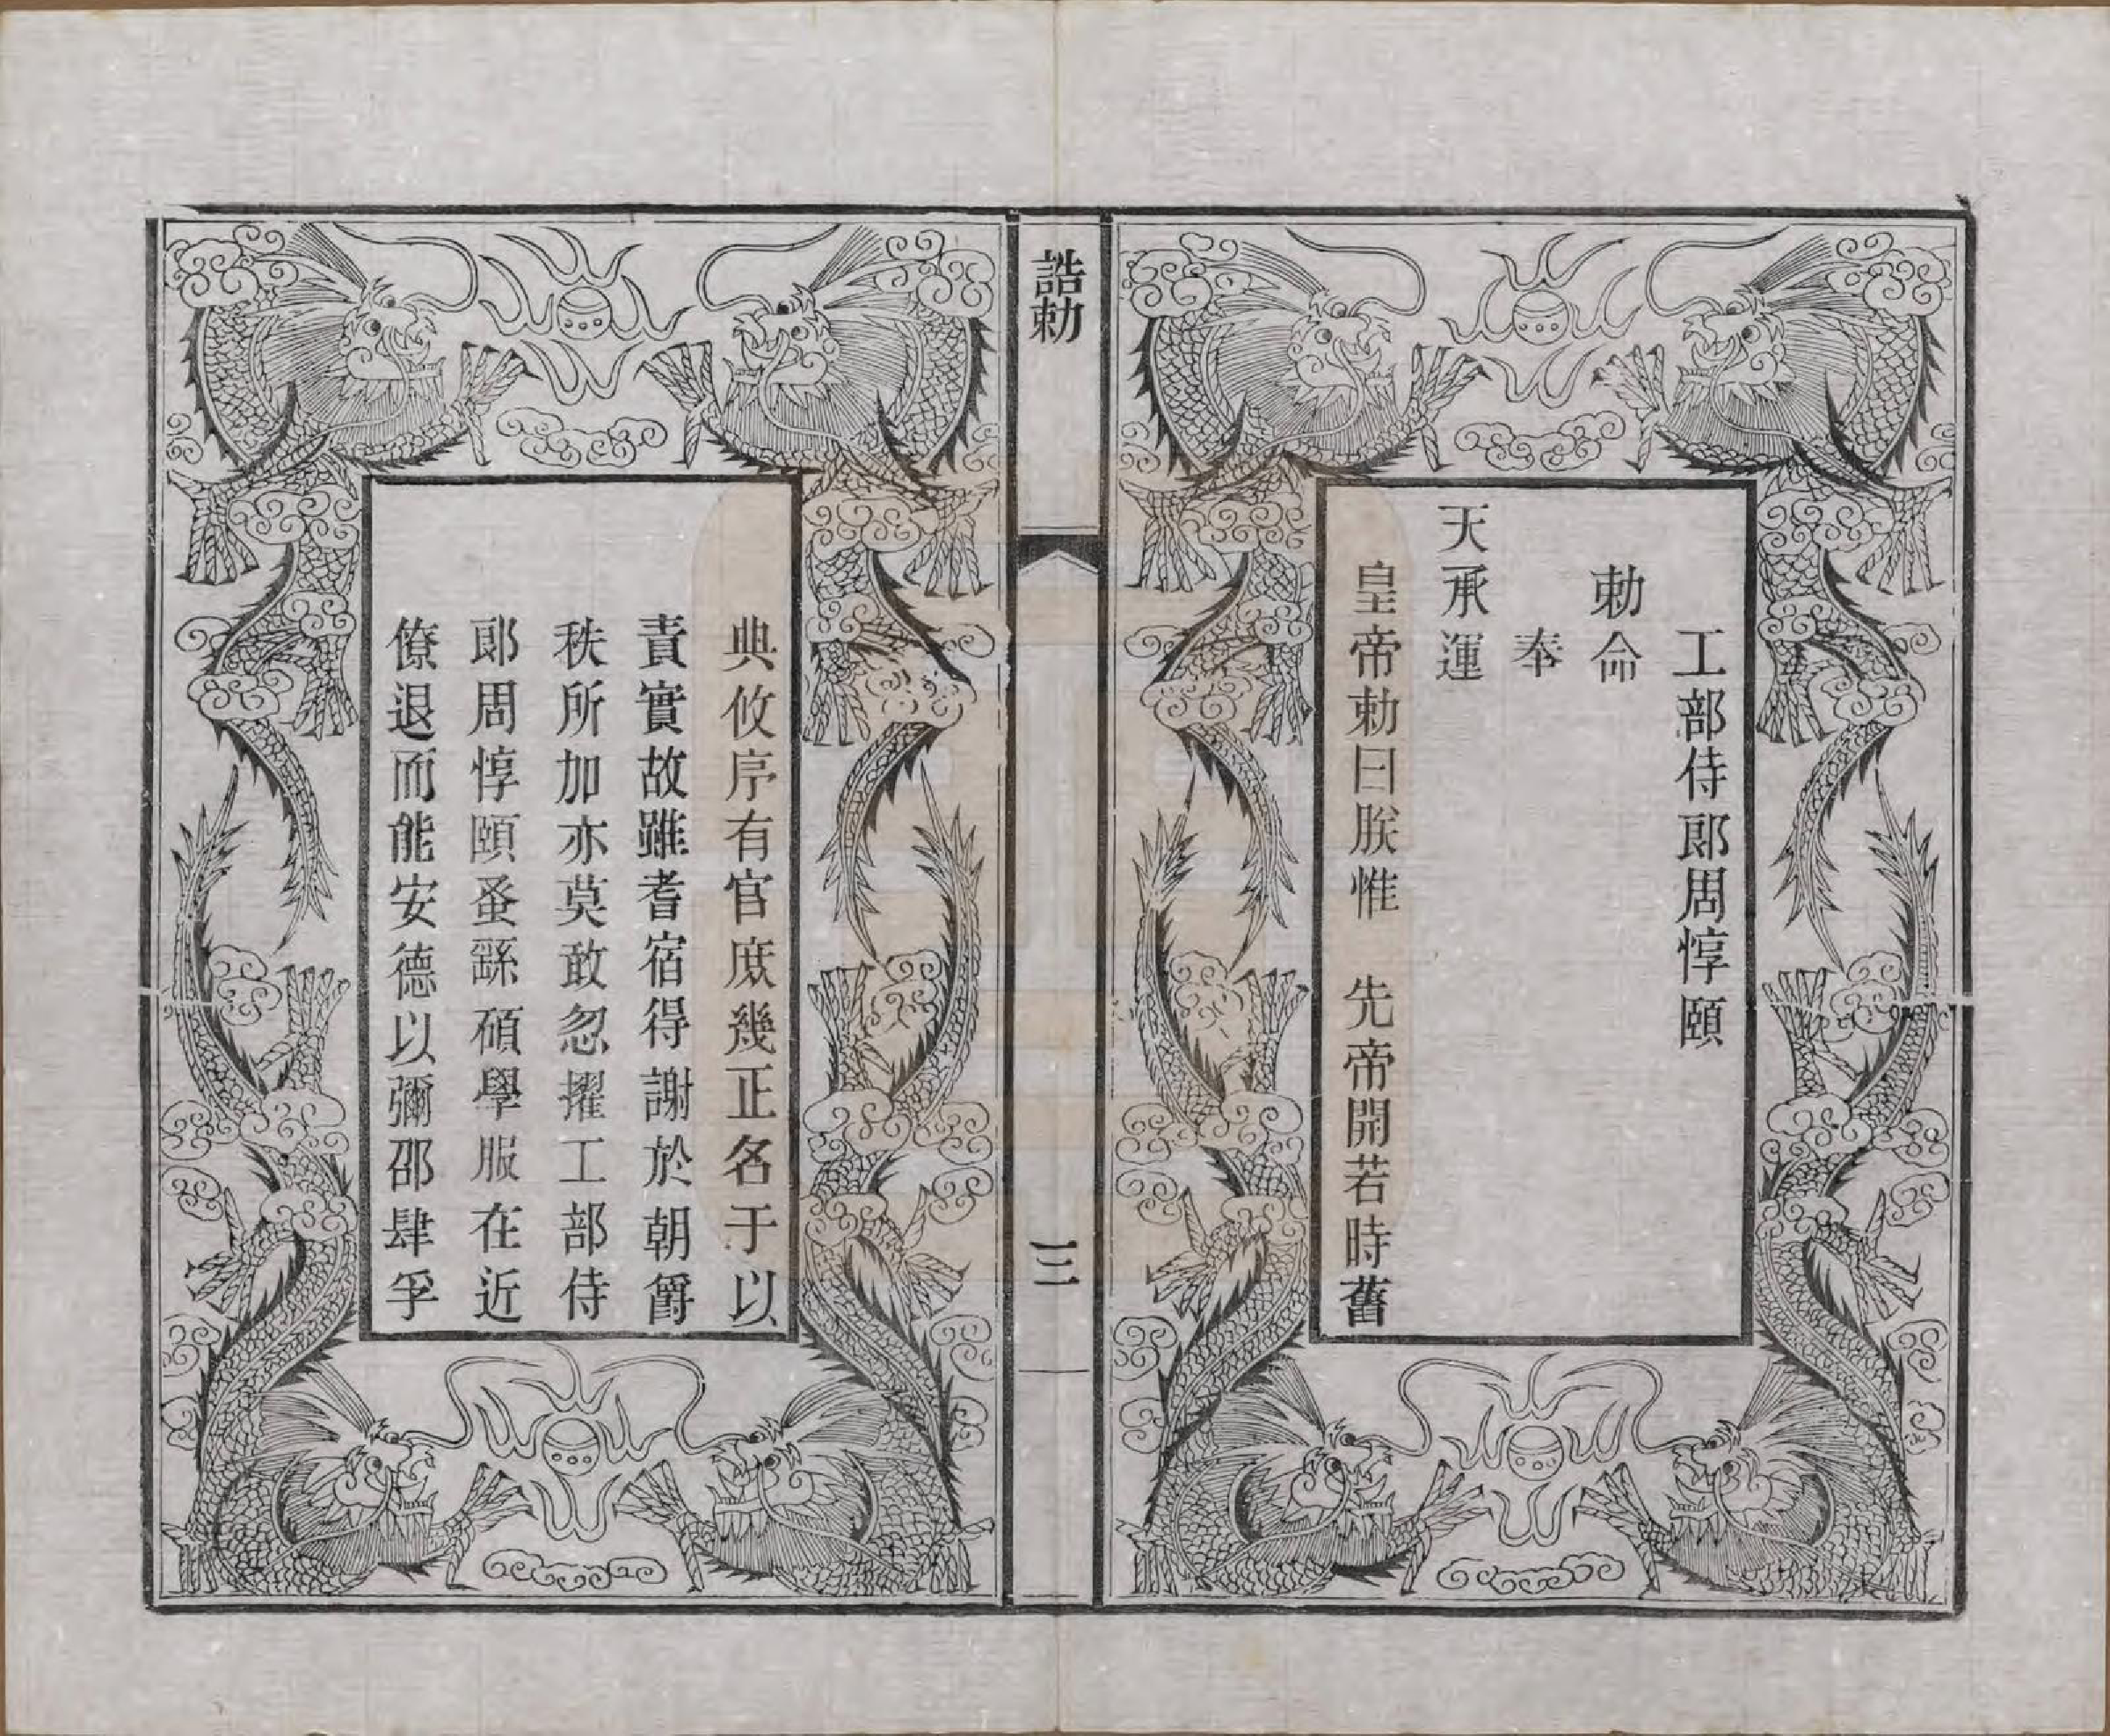 工部侍郞周惇頤
勅命
奉
天承運
皇帝勅曰朕惟　先帝開若時舊
誥勅
三
典攸序有官庶幾正名于以
責實故雖耆宿得謝於朝爵
秩所加亦莫敢忽擢工部侍
郞周惇頤蚤繇碩學服在近
僚退而能安德以彌邵肆孚